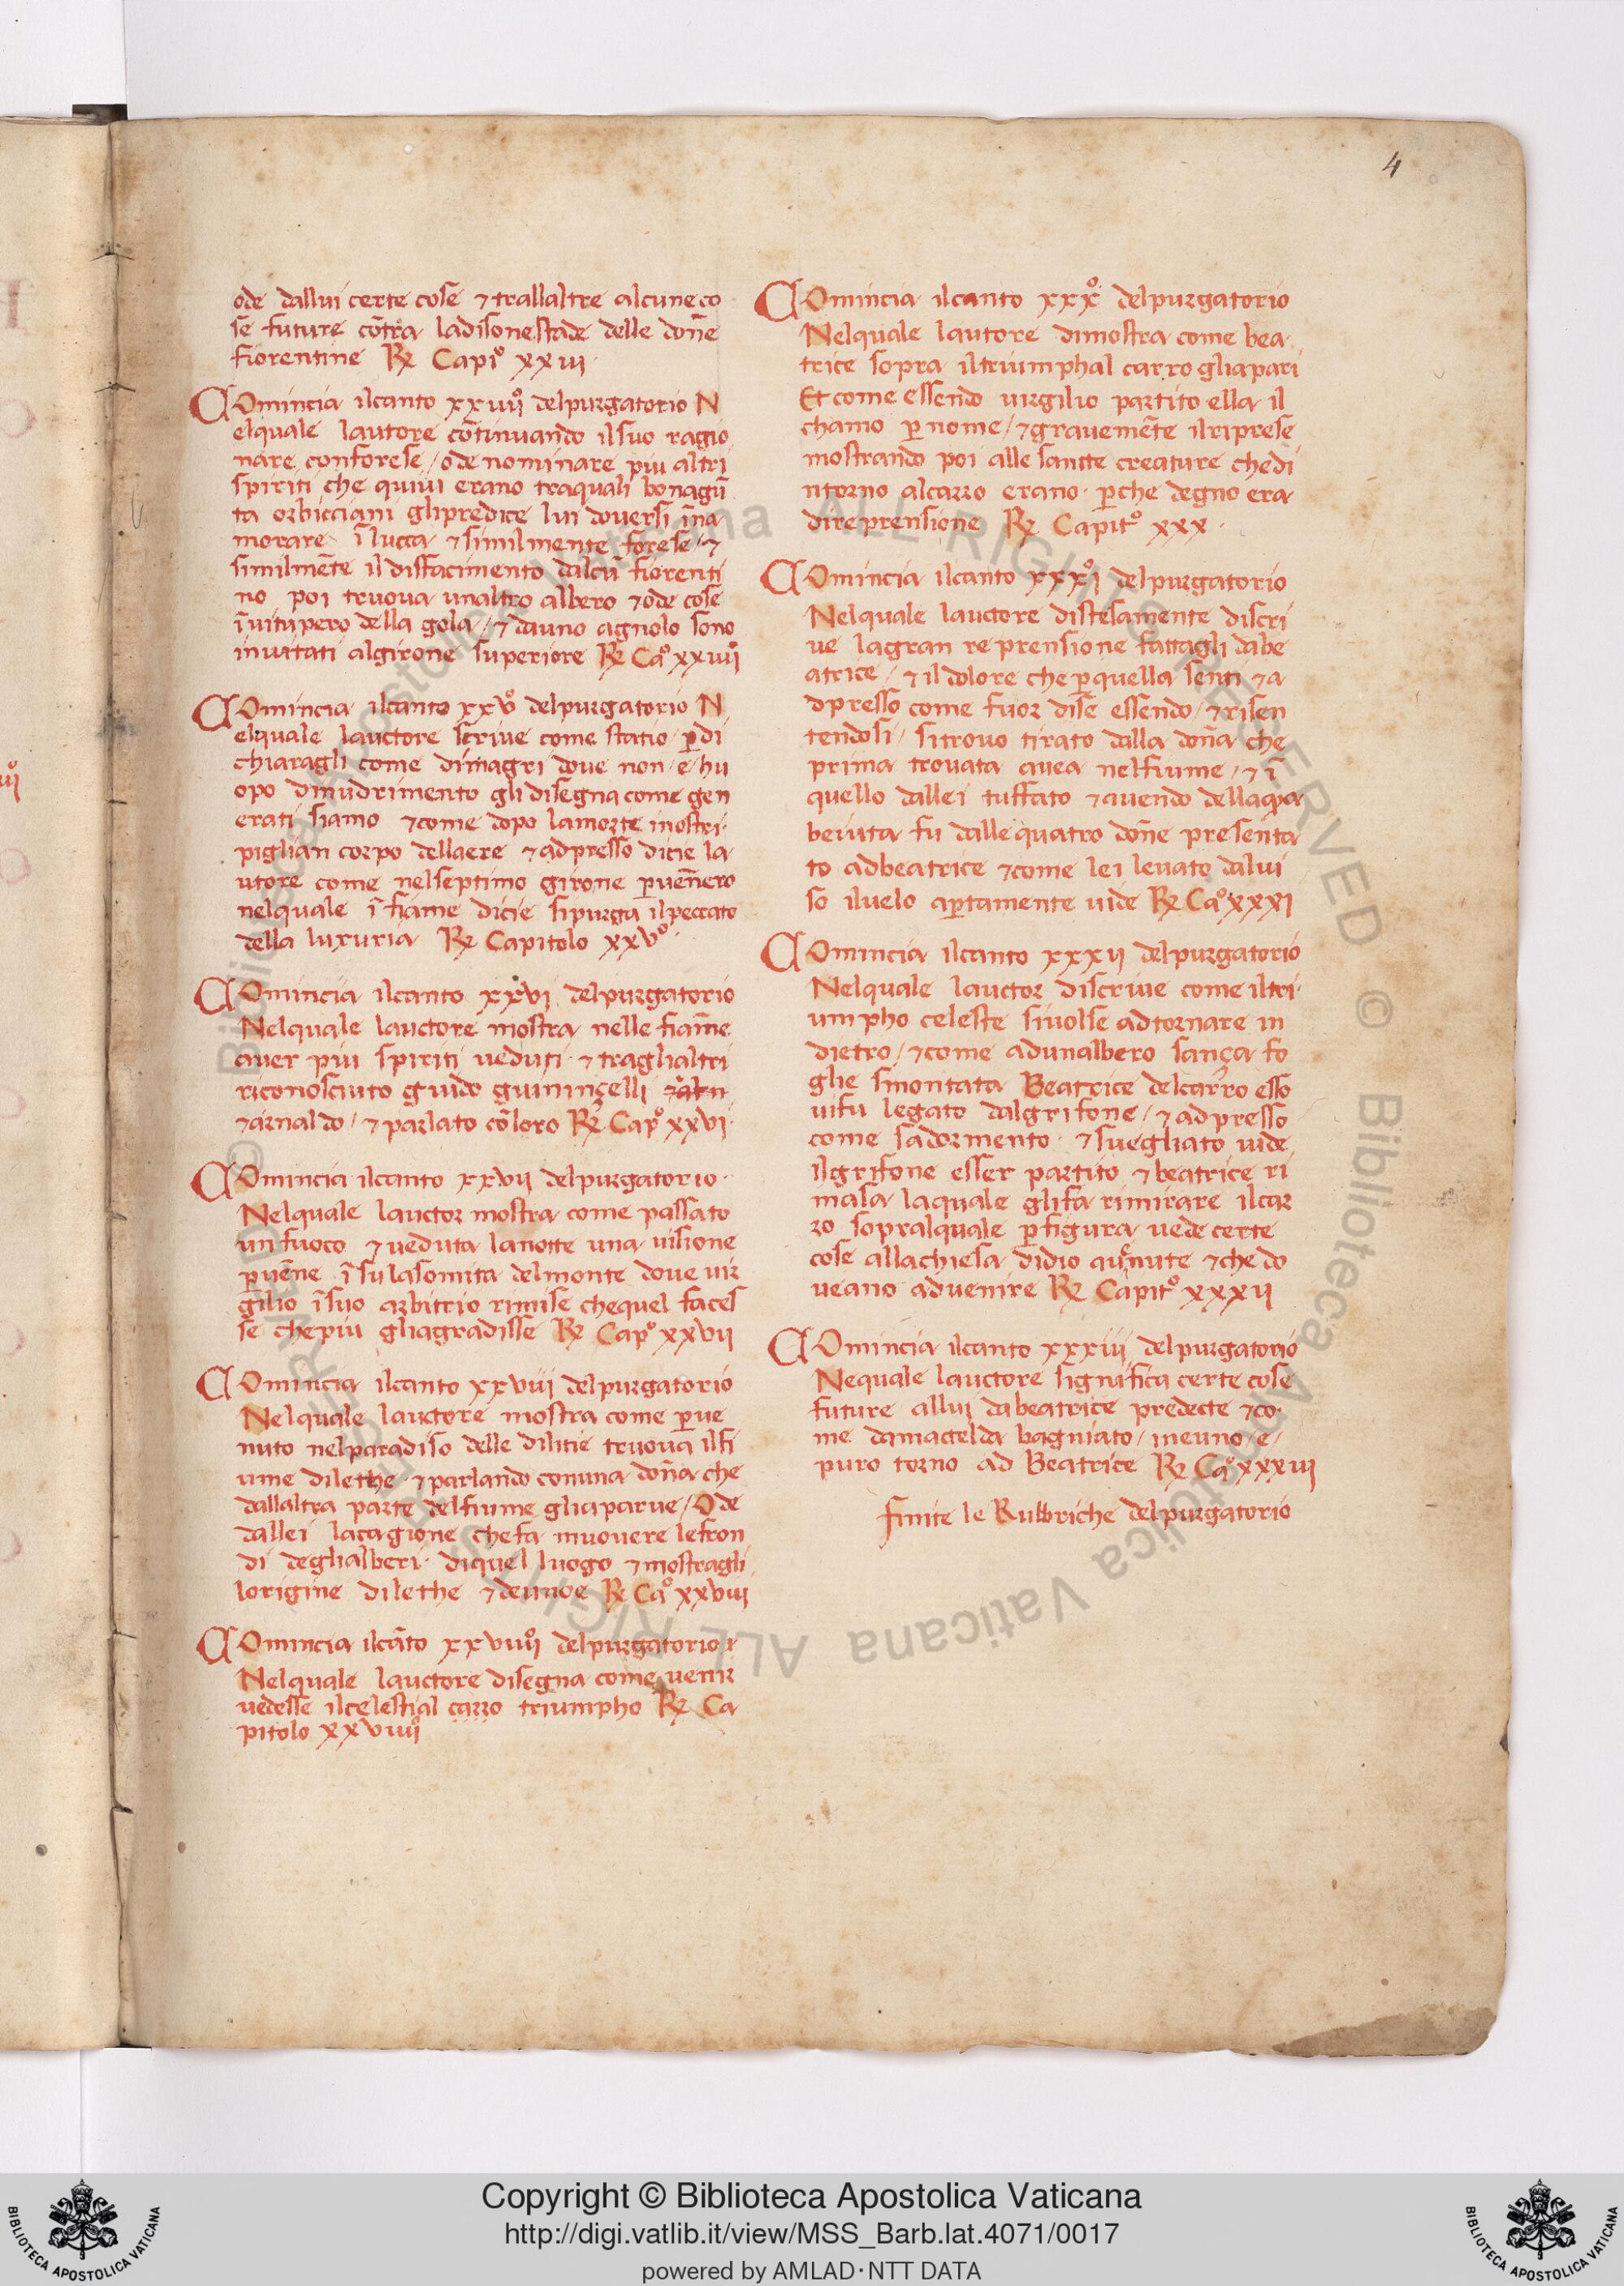 4
ode dallui certe cose ⁊ trallaltre alcune co
se future cõtra ladisonestade delle doñe
fiorentine R Capiº xxiii
COmincia ilcanto xxiiiiº delpurgatorio N
elquale lautore cõtinuando ilsuo ragio
nare conforese / ode nominare piu altri
spiriti che quiui erano traquali bonagiũ
ta orbicciani glipredice lui douersi ĩna
morare ĩ lucca ⁊ similmente forese ⁊
similmẽte il disfacimento dalcũ fiorenti
no poi truoua unaltro albero ⁊ ode cose
ĩ uitupero della gola / ⁊ dauno agnolo sono
inuitati algirone superiore R Caº xxiiiiº
COmincia ilcanto xxvº delpurgatorio N
elquale lauctore scriue come statio p̱ di
chiaragli come dimagri doue non e hu
opo dinudrimento gli disegna come gen
erati siamo ⁊ come dopo lamorte inostri
piglian corpo dellaere ⁊ adpresso dicie la
utore come nelseptimo girone p̱ueñero
nelquale ĩ fiãme dicie sipurga ilpeccato
della luxuria R Capitolo xxvº
COmincia ilcanto xxvi delpurgatorio
Nelquale lauctore mostra nelle fiãme
auer piu spiriti ueduti ⁊ traglialtri
riconosciuto guido guininçelli
⁊ arnaldo / ⁊ parlato cõ loro R Capº xxvi
COmincia ilcanto xxvii delpurgatorio
Nelquale lauctor mostra come passato
un fuoco ⁊ ueduta lanotte una uisione
p̱uẽne ĩ su lasomita delmonte doue uir
gilio ĩ suo arbitrio rimise chequel faces
se chepiu gliagradisse R Capº xxvii
COmincia ilcanto xxviii delpurgatorio
Nelquale lauctore mostra come p̱ue
nuto nelparadiso delle dilitie truoua ilfi
ume dilethe ⁊ parlando conuna doña che
dallaltra parte delfiume gliaparue / Ode
dallei lacagione chefa muouere lefron
di deglialberi diquel luogo ⁊ mostragli
lorigine dilethe ⁊ deunoe R Caº xxviii
COmincia ilcãto xxviiiiº delpurgatorio
Nelquale lauctore disegna come uenir
uedesse ilcelestial carro triumpho R Ca
pitolo xxviiiiº
COmincia ilcanto xxxº delpurgatorio
Nelquale lautore dimostra come bea
trice sopra iltriumphal carro gliapari
Et come essendo uirgilio partito ella il
chamo p̱ nome / ⁊ grauemẽte ilriprese
mostrando poi alle sancte creature chedi
ntorno alcarro erano p̱che degno era
direprensione R Capitº xxx
COmincia ilcanto xxxiº delpurgatorio
Nelquale lauctore distesamente discri
ue lagran reprensione fattagli dabe
atrice / ⁊ il dolore che p̱ quella senti ⁊ a
dpresso come fuor dise essendo / ⁊ risen
tendosi / sitrouo tirato dalla doña che
prima trouata auea nelfiume / ⁊ ĩ
quello dallei tuffato ⁊ auendo dellaqua
beiuta fu dalle quatro doñe presenta
to adbeatrice ⁊ come lei leuato daluі
so iluelo ap̱tamente uide R Caº xxxi
COmincia ilcanto xxxii delpurgatorio
Nelquale lauctor discriue come iltri
umpho celeste siuolse adtornare in
dietro / ⁊ come adunalbero sança fo
glie smontata Beatrice delcarro esso
uifu legato dalgrifone / ⁊ adpresso
come sadormento ⁊ suegliato uide
ilgrifone esser partito ⁊ beatrice ri
masa laquale glifa rimirare ilcar
ro sopralquale p̱ figura uede certe
cose allachiesa didio ⁊ che do
ueano aduenire R Capitº xxxii
COmincia ilcanto xxxiii delpurgatorio
Nequale lauctore significa certe cose
future allui dabeatrice predecte ⁊ co
me damactelda bagniato / ineuno / e /
puro torno ad Beatrice R Caº xxxiii
finite le Rubbriche delpurgatorio
© Biblioteca Apostolica Vaticana ALL RIGHTS RESERVED
© Biblioteca Apostolica Vaticana ALL RIGHTS RESERVED
Copyright © Biblioteca Apostolica Vaticana
http://digi.vatlib.it/view/MSS_Barb.lat.4071/0017
powered by AMLAD·NTT DATA
BIBLIOTECA APOSTOLICA VATICANA
BIBLIOTECA APOSTOLICA VATICANA